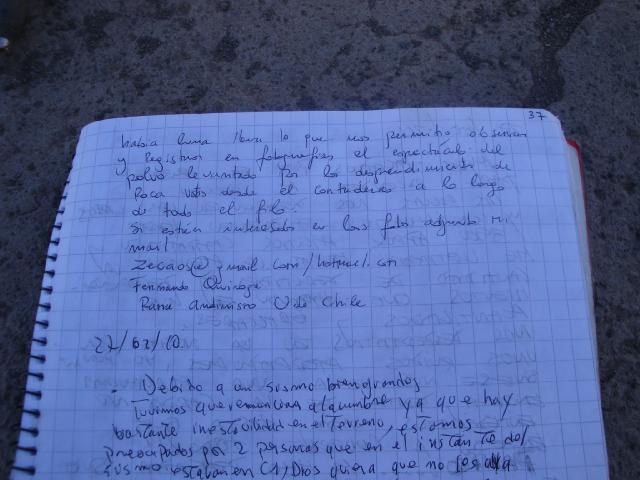 37
había luna llena lo que nos permitió observar
y registrar en fotografías el espectáculo del
polvo levantado por los desprendimientos de
Roca vistos desde el contrafuerte a lo largo
de todo el filo.
Si están interesados en las fotos adjunto mi
mail
zecaos@gmail.com/hotmail.com
Fernando Quiroga
Rama Andinismo U de Chile
27/02/10
. Debido a un sismo bien grande
tuvimos que renunciar a la cumbre ya que hay
bastante inestabilidad en el terreno, estamos
preocupados por 2 personas que en el instante del
sismo estaban en C1, Dios quiera que no les